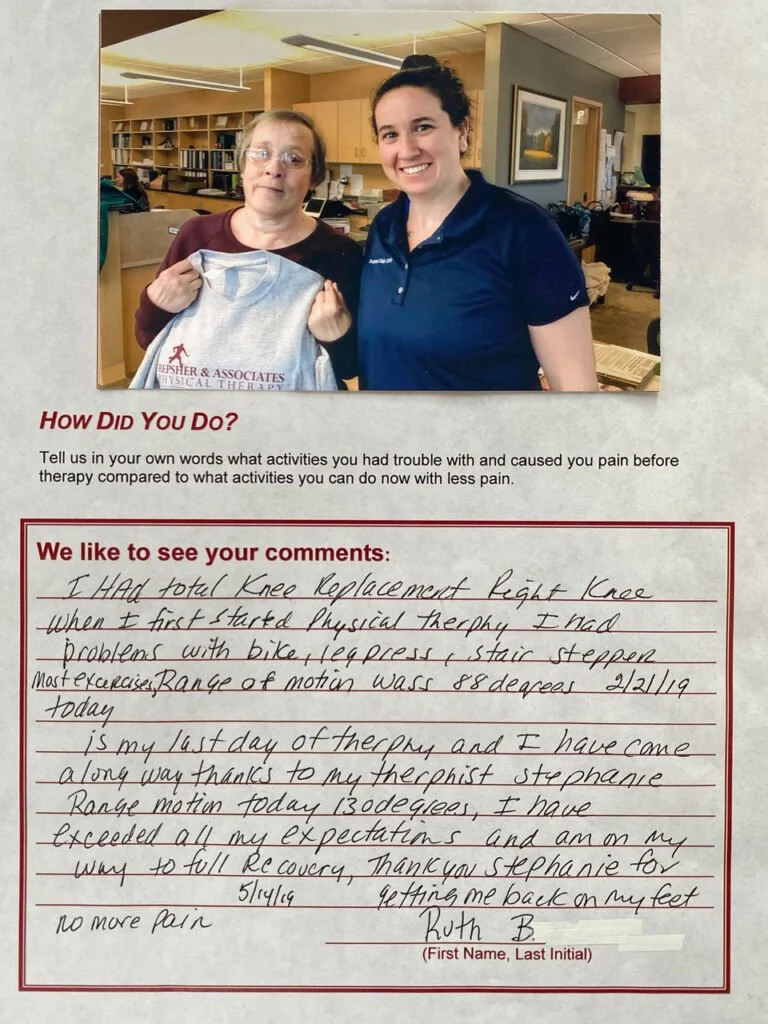 REPSHER & ASSOCIATES
PHYSICAL THERAPY
HOW DID YOU DO?
Tell us in your own words what activities you had trouble with and caused you pain before
therapy compared to what activities you can do now with less pain.
We like to see your comments:
I HAd total Knee Replacement Right Knee
when I first started Physical therphy I had
problems with bike, leg press, stair stepper
Most excercises, Range of motion wass 88 degrees 2/21/19
today
is my last day of therphy and I have come
a long way thanks to my therphist stephanie
Range motion today 130 degrees, I have
exceeded all my expectations and am on my
way to full Recovery, Thank you stephanie for
5/14/19 getting me back on my feet
no more pain
Ruth B.
(First Name, Last Initial)